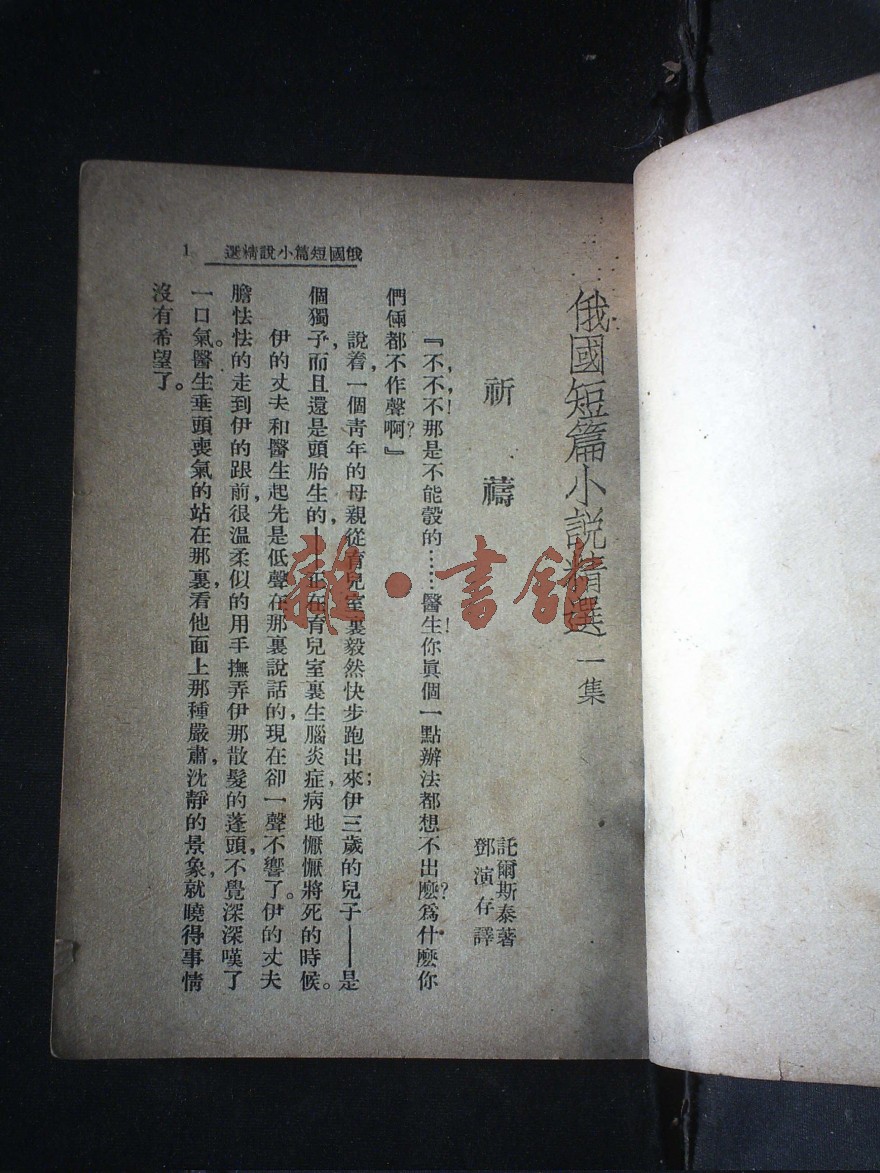 俄國短篇小說精選 一集
祈禱
託爾斯泰著
鄧演存譯
『不,不,不!那是不能彀的……!醫生你眞個一點辦法都想不出麽?爲什麽你
們倆都不作聲啊?』
說着,一個靑年的母親從育兒室裏毅然快步跑出來;伊三歲的兒子——是
個獨子,而且還是頭胎生的,——正在育兒室裏生腦炎症,病地懨懨將死的時候。
伊的丈夫和醫生起先是低聲在那裏說話的,現在卻一聲不響了。伊的丈夫
膽怯怯的走到伊的跟前,很温柔似的用手撫弄伊那散髮的蓬頭,不覺深深嘆了
一口氣。醫生垂頭喪氣的站在那裏,看他面上那種嚴肅,沈靜的景象,就曉得事情
沒有希望了。
俄國短篇小說精選
1
雜·書館